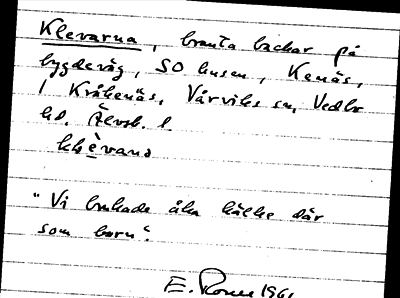 Klevarna, branta backar på
bygdeväg, SO husen, Kenäs,
1 Kråkenäs, Vårviks sn, Vedbo
hd, Älvsb. l
klèvana
"Vi brukade åka kälke där
som barn".
E. 1961